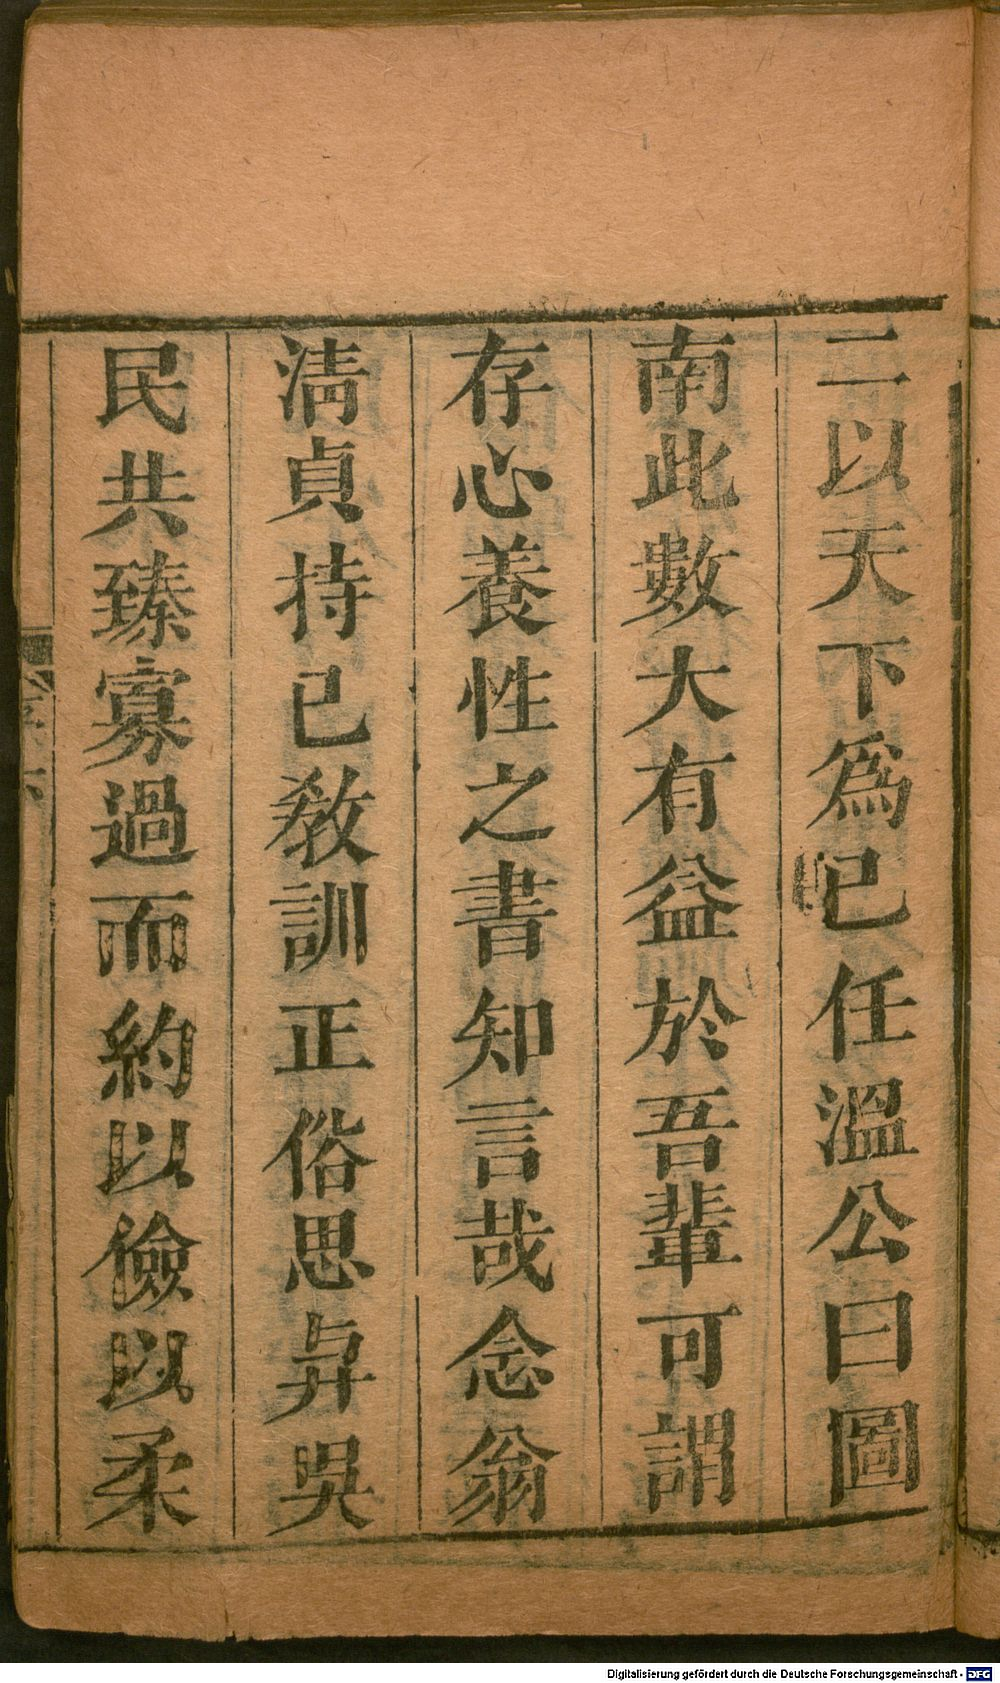 二以天下爲已任溫公曰圖
南此數大有益於吾輩可謂
存心養性之書知言哉念翁
淸貞持已敎訓正俗思與吳
民共臻寡過而約以儉以柔
Digitalisierung gefördert durch die Deutsche Forschungsgemeinschaft - DFG